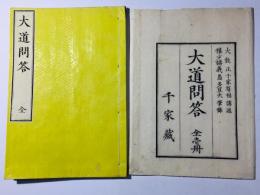 大道問答 全
大教正千家尊福講述
權少講義島多豆夫筆録
大道問答 全壱冊
千家藏